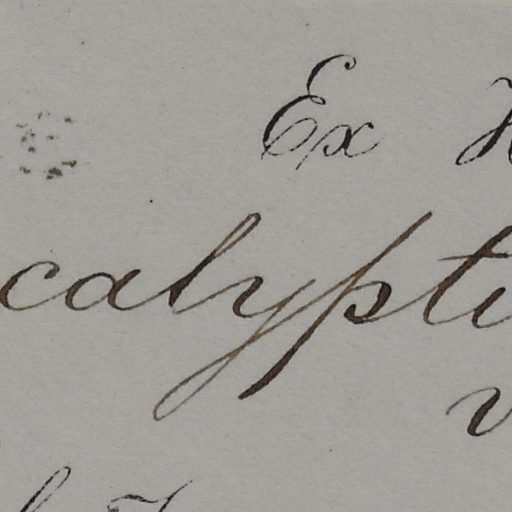 Ex H
calypti
v